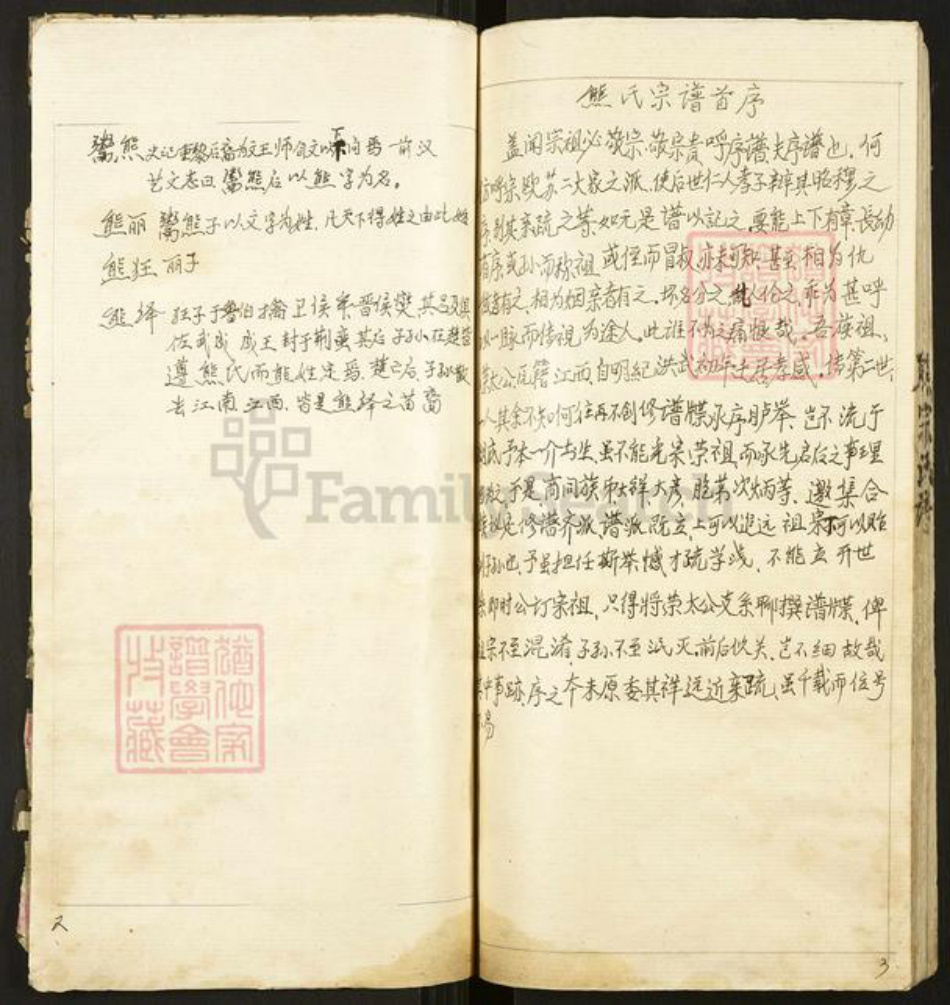 鬻熊 史记重黎后裔为文王师自文以下问焉前汉
艺文志曰鬻熊后以熊字为名。
熊丽 鬻熊子以文字为姓,凡天下得姓之由此始
熊狂 丽子
熊绎 狂子于鲁伯禽卫侯牟晋侯燮其吕及俱
佐武成 成王封于荆蛮其后子孙在楚皆
遵熊氏而熊姓定焉,楚亡后,子孙散
去江南江西,皆是熊绎之苗裔
2
熊氏宗谱首序
盖闻宗祖必敬宗,敬宗贵呼序谱夫序谱也,何
呼宗欧苏二大家之派,使后世仁人孝子辨其昭穆之
序别其亲疏之等,如无是谱以记之,要能上下有章,长幼
有序或孙而称祖,或侄而冒叔亦未可知,甚至相为仇
者有之,相为姻宗者有之,坏名分之 人伦之乖为甚呼
以一脉而情视为途人,此谁不为之痛恨哉。吾族祖,
荣太公,原籍江西,自明纪洪武初年于居孝感,传第二世,
一人其余不知何往再不创修谱牒永序胪举,岂不流于
底予本一介书生,虽不能光宗荣祖,而承先启后之事理
之,于是商同族中大祥大彦,胞弟次炳等,邀集合
族 修谱齐派,谱派既立,上可以追远祖宗下可以贻
子孙也,予虽担任斯举憾才疏学浅,不能立开世
系即时公订宗祖,只得将荣太公支系聊撰谱牒,俾
祖宗不至混淆子孙不至泯灭,前后攸关,岂不细故哉
其中事跡序之本末原委其祥远近亲疏,虽千载而位号
不易
3
熊宗
FamilySearch
猶他家
譜學會
收藏